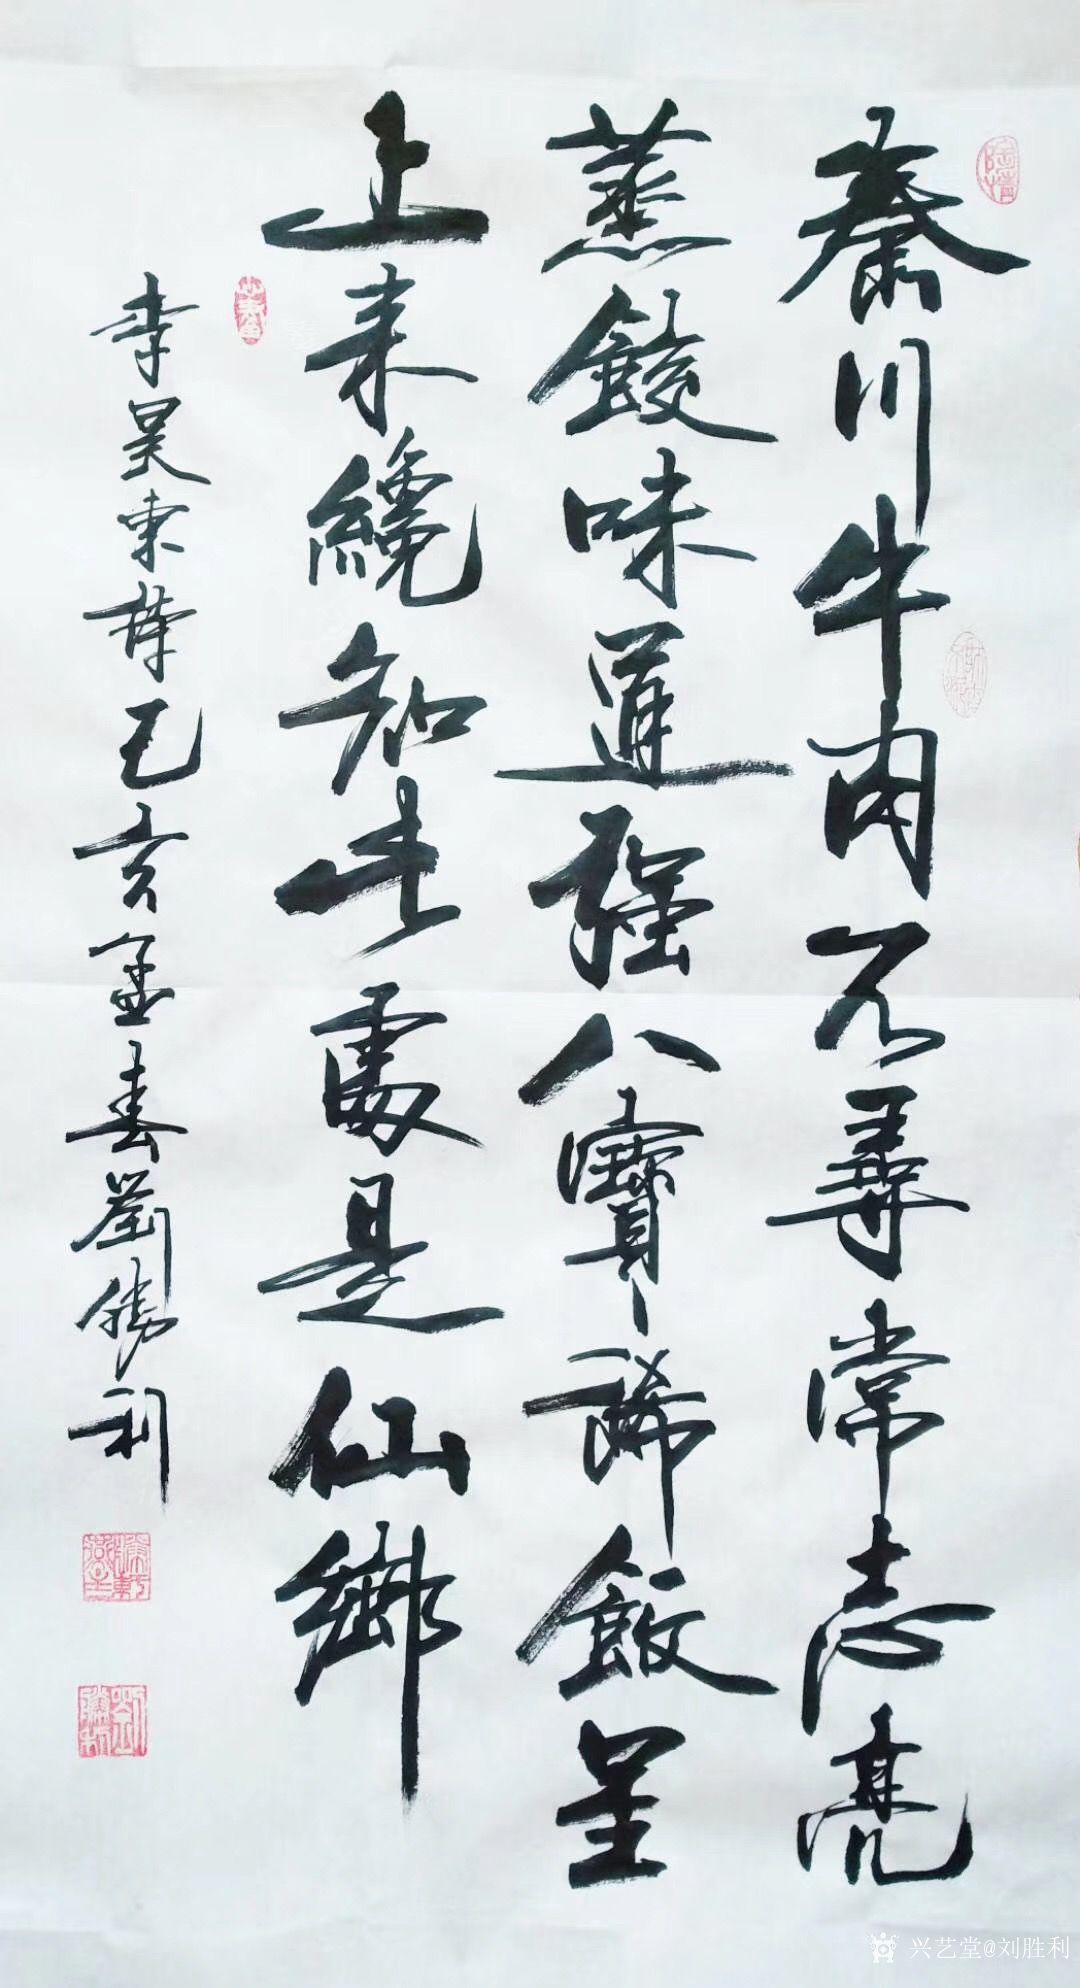 秦川牛肉不尋常志亮
蒸餃味道強八寶稀飯呈
上来纔知此處是仙鄉
李昊東撰己亥孟春劉勝利
兴艺堂@刘胜利